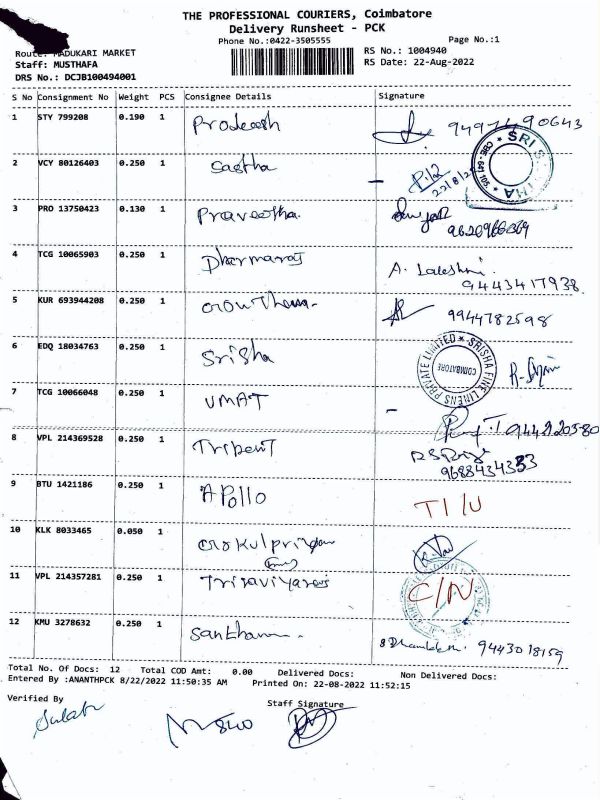 THE PROFESSIONAL COURIERS, Coimbatore
Delivery Runsheet - PCK
Phone No.:0422-3505555
Page No.:1
Route: MADUKARI MARKET
RS No.: 1004940
Staff: MUSTHAFA
RS Date: 22-Aug-2022
DRS No.: DCJB100494001
S No Consignment No Weight PCS Consignee Details Signature
1 STY 799208 0.190 1 Pradeesh
2 VCY 80126403 0.250 1 Sastha
P.12
22/8/22
SRI SASTHA
3 PRO 13750423 0.130 1 Praveetha.
9620966369
4 TCG 10065903 0.250 1 Dharmaraj A. Lakshmi.
9443417938.
5 KUR 693944208 0.250 1 9944782598
6 EDQ 18034763 0.250 1 Srisha
SRISHA FINE LINENS PRIVATE LIMITED
COIMBATORE
7 TCG 10066048 0.250 1 UMAT
8 VPL 214369528 0.250 1 Trident
9688434333
9 BTU 1421186 0.250 1 APOLLO TI/U
10 KLK 8033465 0.050 1
11 VPL 214357281 0.250 1 C/N
12 KMU 3278632 0.250 1 9443018159
Total No. Of Docs: 12 Total COD Amt: 0.00 Delivered Docs: Non Delivered Docs:
Entered By :ANANTHPCK 8/22/2022 11:50:35 AM Printed On: 22-08-2022 11:52:15
Verified By
Staff Signature